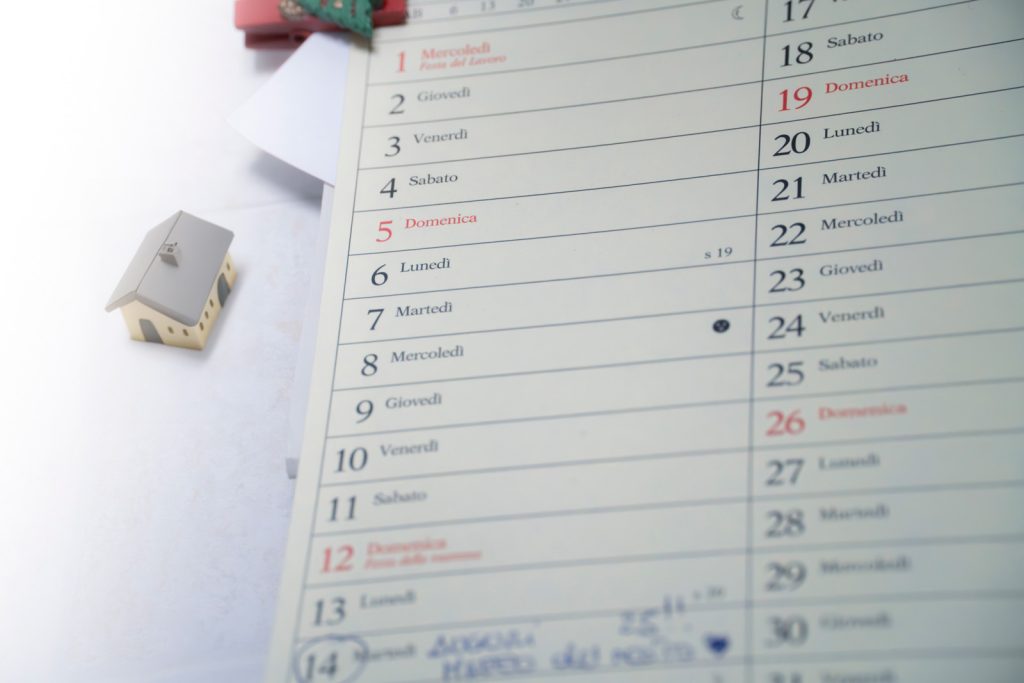 6 13 20
1 Mercoledì
Festa del Lavoro
2 Giovedì
3 Venerdì
4 Sabato
5 Domenica
6 Lunedì
s 19
7 Martedì
8 Mercoledì
9 Giovedì
10 Venerdì
11 Sabato
12 Domenica
Festa della mamma
13 Lunedì
14 Martedì
AUGURI
17
18 Sabato
19 Domenica
20 Lunedì
21 Martedì
22 Mercoledì
23 Giovedì
24 Venerdì
25 Sabato
26 Domenica
27 Lunedì
28 Martedì
29 Mercoledì
30 Giovedì
31 Venerdì